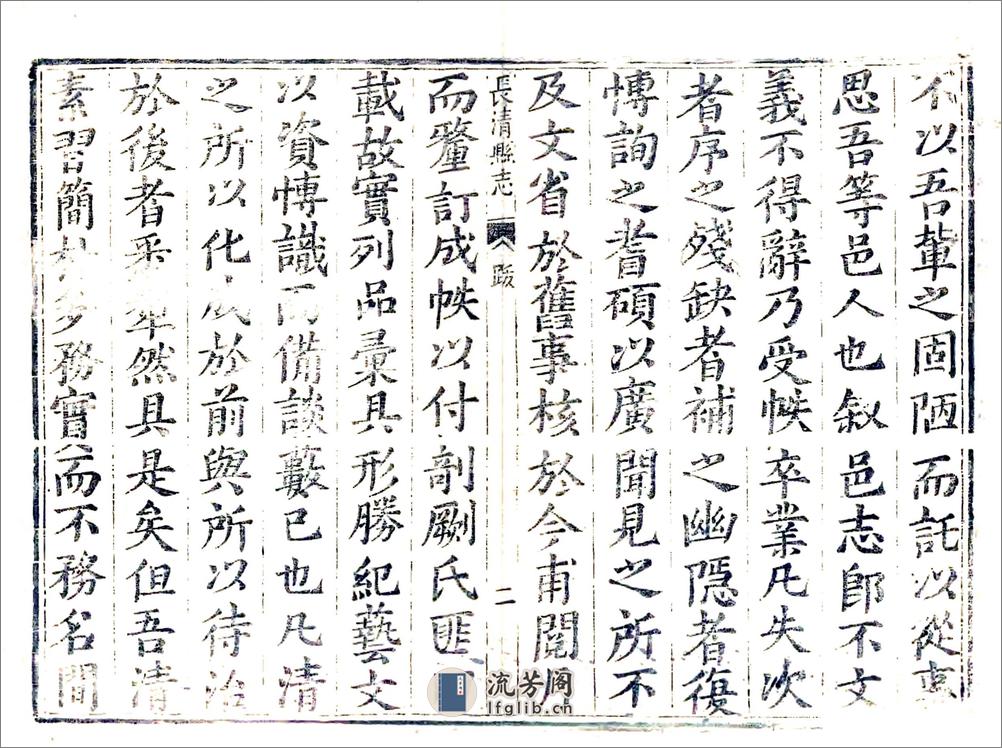 不以吾輩之固陋而託以從事
思吾等邑人也叙邑志卽不文
義不得辭乃受帙卒業凡失次
者序之殘缺者補之幽隱者復
博詢之耆碩以廣聞見之所不
及文省於舊事核於今甫閱
長清縣志 跋 二
而釐訂成帙以付剞劂氏匪
載故實列品彙具形勝紀藝文
以資博識而備談藪已也凡清
之所以化成於前與所以待治
於後者 犂然具是矣但吾清
素習簡朴多務實而不務名間
流芳阁
lfglib.cn